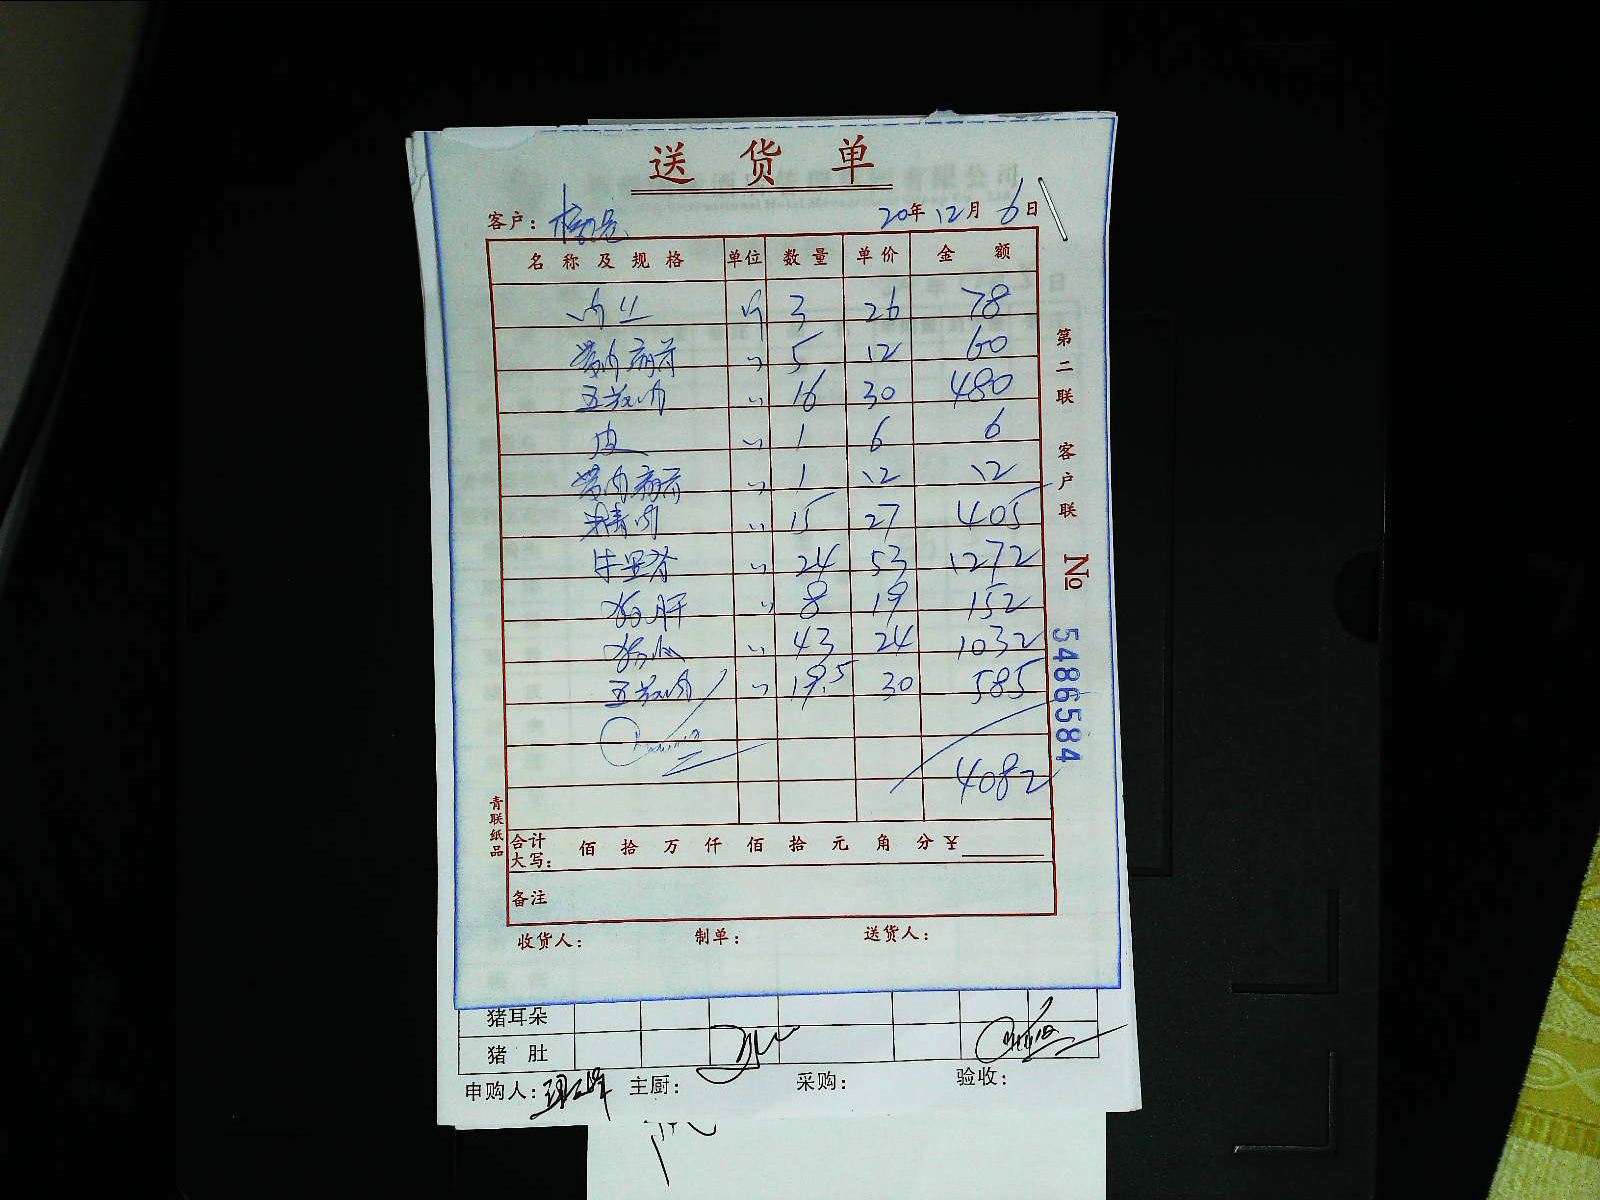 送货单
客户： 20年12月6日
名称及规格 单位 数量 单价 金额
肉丝 斤 3 26 78
带肉扇骨 〃 5 12 60
五花肉 〃 16 30 480
皮 〃 1 6 6
带肉扇骨 〃 1 12 12
精肉 〃 15 27 405
牛里脊 〃 24 53 1272
猪肝 〃 8 19 152
〃 43 24 1032
五花肉 〃 19.5 30 585
4082
合计大写： 佰 拾 万 仟 佰 拾 元 角 分 ¥
备注
收货人： 制单： 送货人：
第二联 客户联
№ 5486584
青联纸品
猪耳朵
猪肚
申购人： 主厨： 采购： 验收：